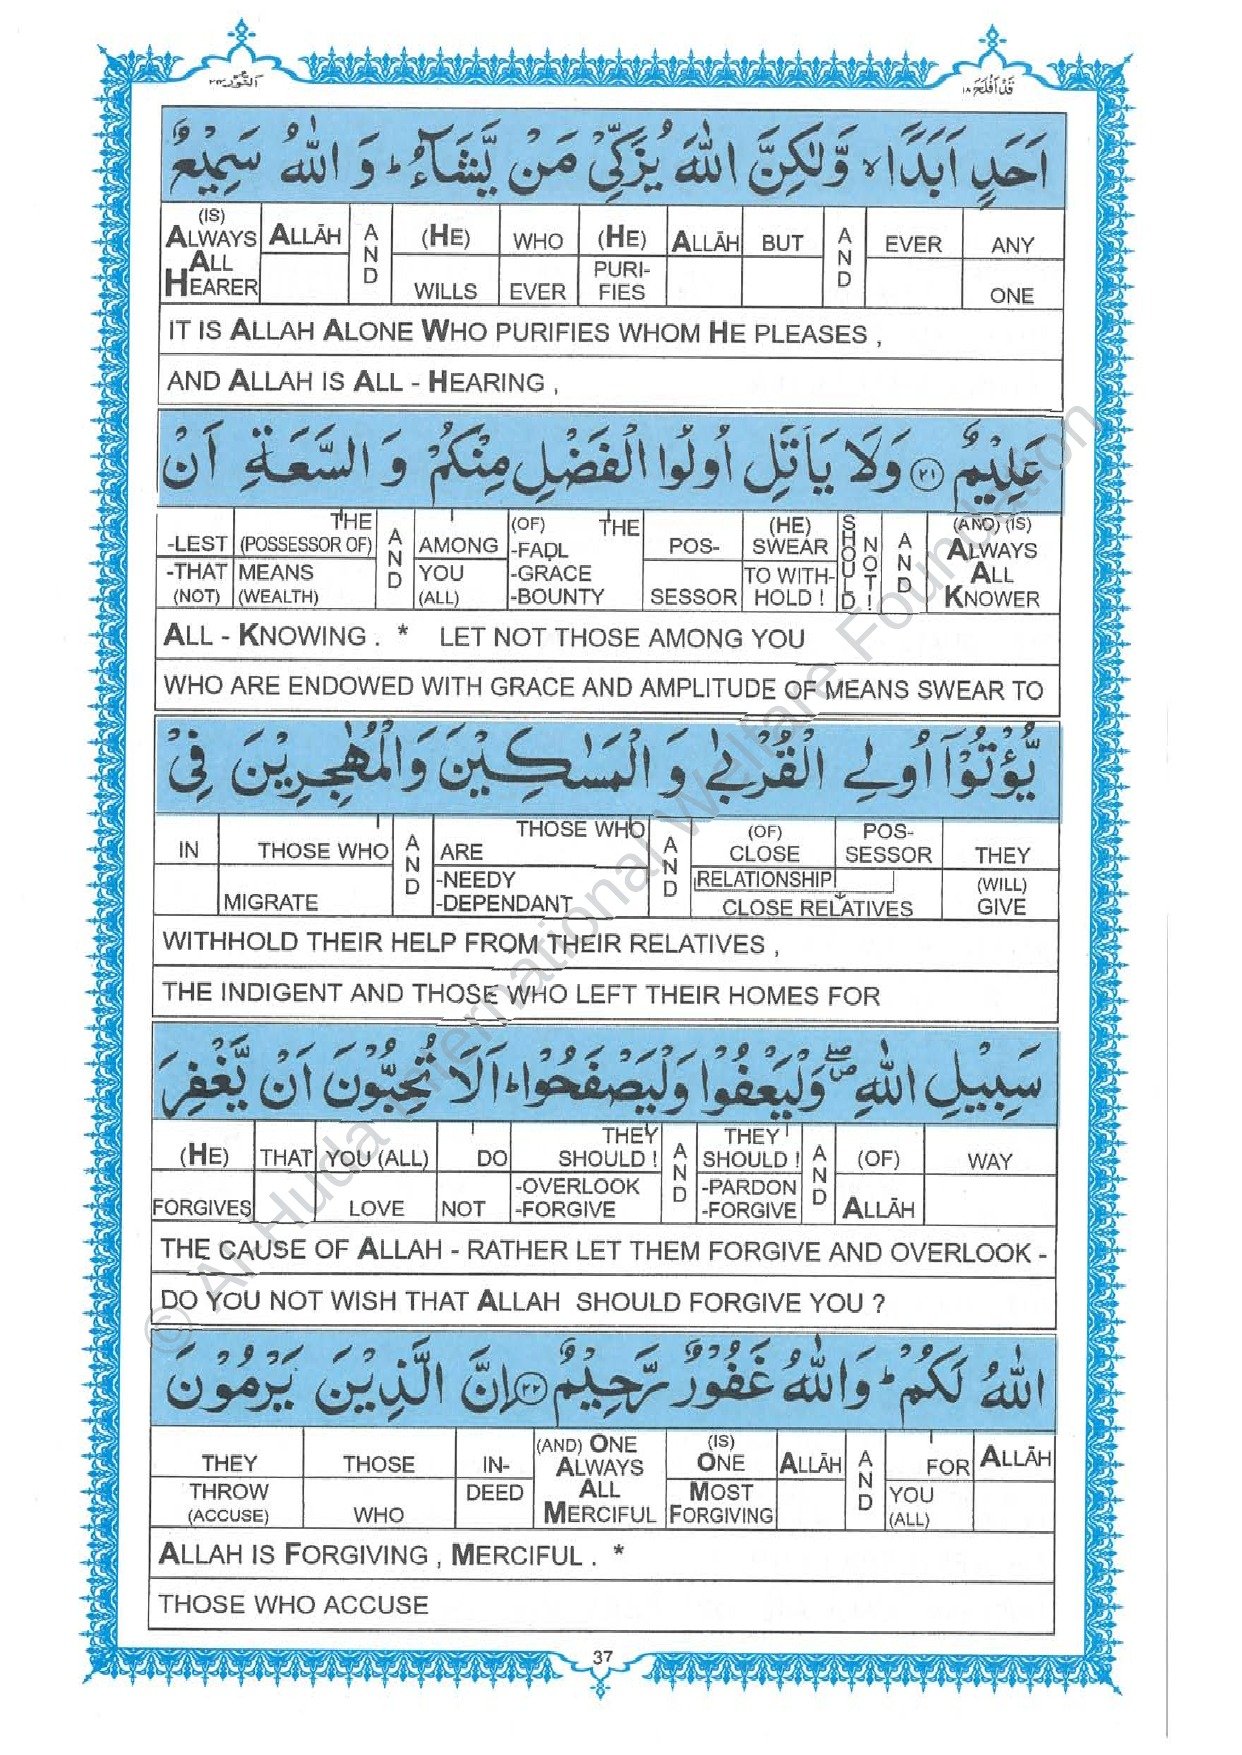 اَلنُّوْر ٢٤
قَدْ اَفْلَحَ ١٨
اَحَدٍ اَبَدًا ۙ وَّلٰكِنَّ اللّٰهَ يُزَكِّيْ مَنْ يَّشَآءُ ؕ وَ اللّٰهُ سَمِيْعٌ
(IS) ALWAYS ALL HEARER | ALLĀH | AND | (HE) WILLS | WHO EVER | (HE) PURI- FIES | ALLĀH | BUT | AND | EVER | ANY ONE
IT IS ALLAH ALONE WHO PURIFIES WHOM HE PLEASES ,
AND ALLAH IS ALL - HEARING ,
عَلِيْمٌ ﴿٢١﴾ وَلَا يَاْتَلِ اُولُوا الْفَضْلِ مِنْكُمْ وَ السَّعَةِ اَنْ
-LEST -THAT (NOT) | THE (POSSESSOR OF) MEANS (WEALTH) | AND | AMONG YOU (ALL) | (OF) THE -FAḌL -GRACE -BOUNTY | POS- SESSOR | (HE) SWEAR TO WITH- HOLD ! | SHOULD NOT ! | AND | (AND) (IS) ALWAYS ALL KNOWER
ALL - KNOWING . * LET NOT THOSE AMONG YOU
WHO ARE ENDOWED WITH GRACE AND AMPLITUDE OF MEANS SWEAR TO
يُّؤْتُوْۤا اُولِي الْقُرْبٰى وَ الْمَسٰكِيْنَ وَالْمُهٰجِرِيْنَ فِيْ
IN | THOSE WHO MIGRATE | AND | THOSE WHO ARE -NEEDY -DEPENDANT | AND | (OF) CLOSE RELATIONSHIP | POS- SESSOR | CLOSE RELATIVES | THEY (WILL) GIVE
WITHHOLD THEIR HELP FROM THEIR RELATIVES ,
THE INDIGENT AND THOSE WHO LEFT THEIR HOMES FOR
سَبِيْلِ اللّٰهِ ۖ وَلْيَعْفُوْا وَلْيَصْفَحُوْا ؕ اَلَا تُحِبُّوْنَ اَنْ يَّغْفِرَ
(HE) FORGIVES | THAT | YOU (ALL) LOVE | DO NOT | THEY SHOULD ! -OVERLOOK -FORGIVE | AND | THEY SHOULD ! -PARDON -FORGIVE | AND | (OF) ALLĀH | WAY
THE CAUSE OF ALLAH - RATHER LET THEM FORGIVE AND OVERLOOK -
DO YOU NOT WISH THAT ALLAH SHOULD FORGIVE YOU ?
اللّٰهُ لَكُمْ ؕ وَاللّٰهُ غَفُوْرٌ رَّحِيْمٌ ﴿٢٢﴾ اِنَّ الَّذِيْنَ يَرْمُوْنَ
THEY THROW (ACCUSE) | THOSE WHO | IN- DEED | (AND) ONE ALWAYS ALL MERCIFUL | (IS) ONE MOST FORGIVING | ALLĀH | AND | FOR YOU (ALL) | ALLĀH
ALLAH IS FORGIVING , MERCIFUL . *
THOSE WHO ACCUSE
37
© Al Huda International Welfare Foundation